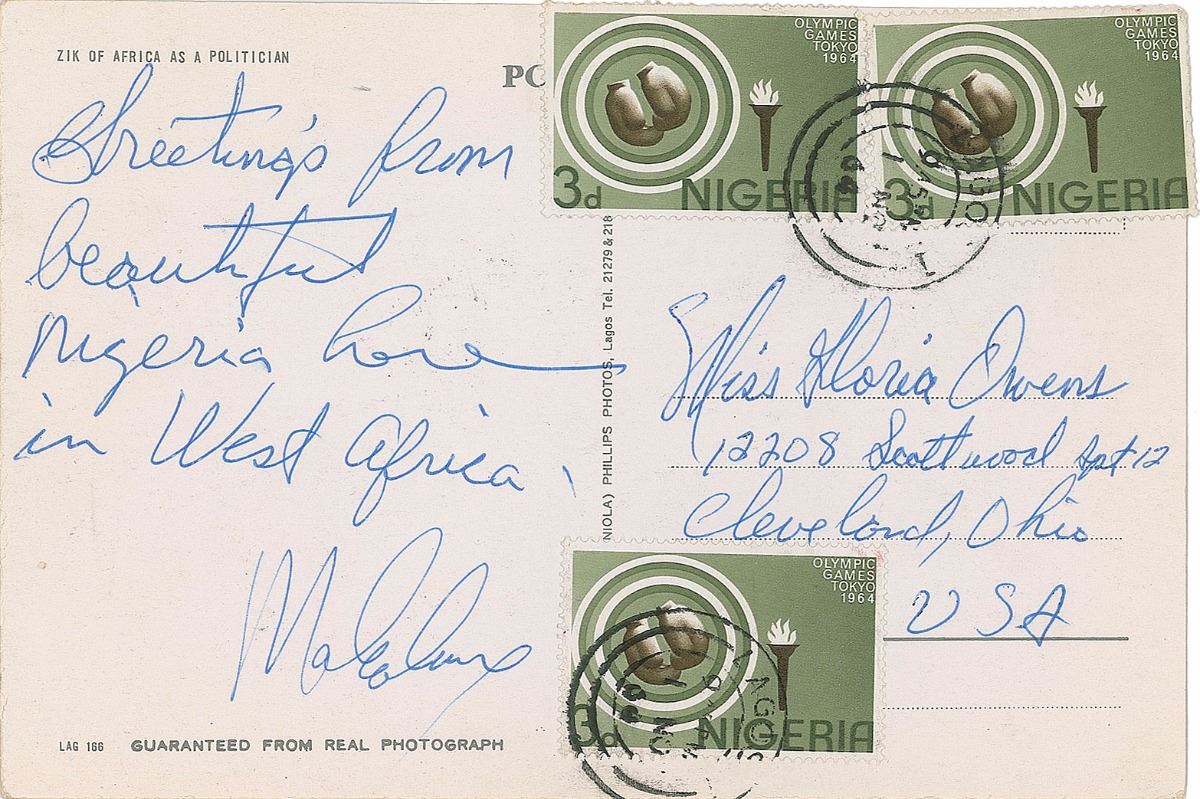 ZIK OF AFRICA AS A POLITICIAN
Greetings from
beautiful
Nigeria here
in West Africa.
Malcolm X
LAG 166 GUARANTEED FROM REAL PHOTOGRAPH
PO
NIOLA) PHILLIPS PHOTOS, Lagos Tel. 21279 & 218
OLYMPIC
GAMES
TOKYO
1964
3d NIGERIA
OLYMPIC
GAMES
TOKYO
1964
3d NIGERIA
Miss Gloria Owens
12208 Scottwood Apt 12
Cleveland, Ohio
USA
OLYMPIC
GAMES
TOKYO
1964
3d NIGERIA